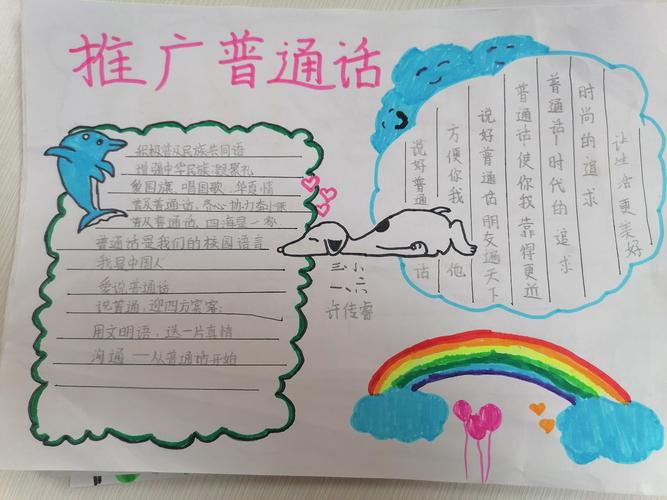 推广普通话
积极普及民族共同语
增强中华民族凝聚礼
爱国旗、唱国歌、真情
普及普通话、齐心协力奋
普及普通话、四海是一家
普通话是我们的校园语言
我是中国人
爱说普通话
说普通、迎四方宾客;
用文明语，送一片真情
沟通——从普通话开始
让生活更美好
时尚的追求
普通话，时代的追求
普通话，使你我靠得更近
说好普通话 朋友遍天下
方便你我他
说好普通话
三小
一、六
许传睿